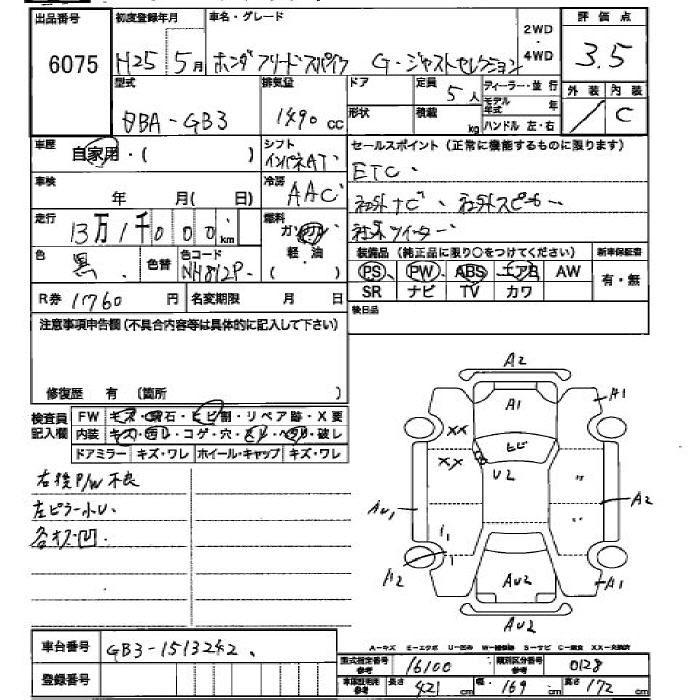 出品番号 初度登録年月 車名・グレード 2WD 評価点
6075 H25 5月 ホンダフリードスパイク G・ジャストセレクション ・4WD 3.5
型式 排気量 ドア 定員 5人 ディーラー・並行 外装 内装
DBA-GB3 1490cc 形状 積載 kg モデル年式 年 ハンドル左・右 C
車歴 自家用・( ) シフト インパネAT セールスポイント(正常に機能するものに限ります)
車検 年 月( 日) 冷房 AAC ETC.
社外ナビ、社外スピーカー
走行 13万1千000km 燃料 ガソリン 軽・油 ( ) 社外ツイーター
色 黒 色替 色コード NH812P 装備品(純正品に限り○をつけてください) 新車保証書
PS PW ABS エアB AW 有・無
R券 1760円 名変期限 月 日 SR ナビ TV カワ
注意事項申告欄(不具合内容等は具体的に記入して下さい) 後日品
修復歴 有 (箇所 )
検査員記入欄 FW キズ・飛石・ヒビ割・リペア跡・X要
内装 キズ・汚れ・コゲ・穴・ ・ ・破レ
ドアミラー キズ・ワレ ホイール・キャップ キズ・ワレ
右後P/W不良
左ピラー小U.
各オス凹.
A2
A1 A1
XX ヒビ
XX U2
AU1 A2
A2 AU2 A1
AU2
A-キズ E-エクボ U-凹み W-補修跡 S-サビ C-腐食 XX-交換済
車台番号 GB3-1513242
型式指定番号 参考 16100 類別区分番号 参考 0128
登録番号
参考 長さ 421cm 幅 169cm 高さ 172cm